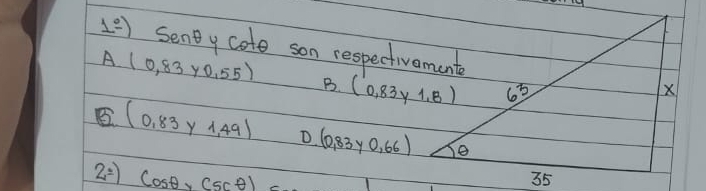 1º) Senθ y Cotθ son respectivamente
A (0,83 y 0,55)
B. (0,83 y 1,8)
(0,83 y 1,49)
D. (0,83 y 0,66)
63
x
θ
35
2º) Cosθ y Csc θ)